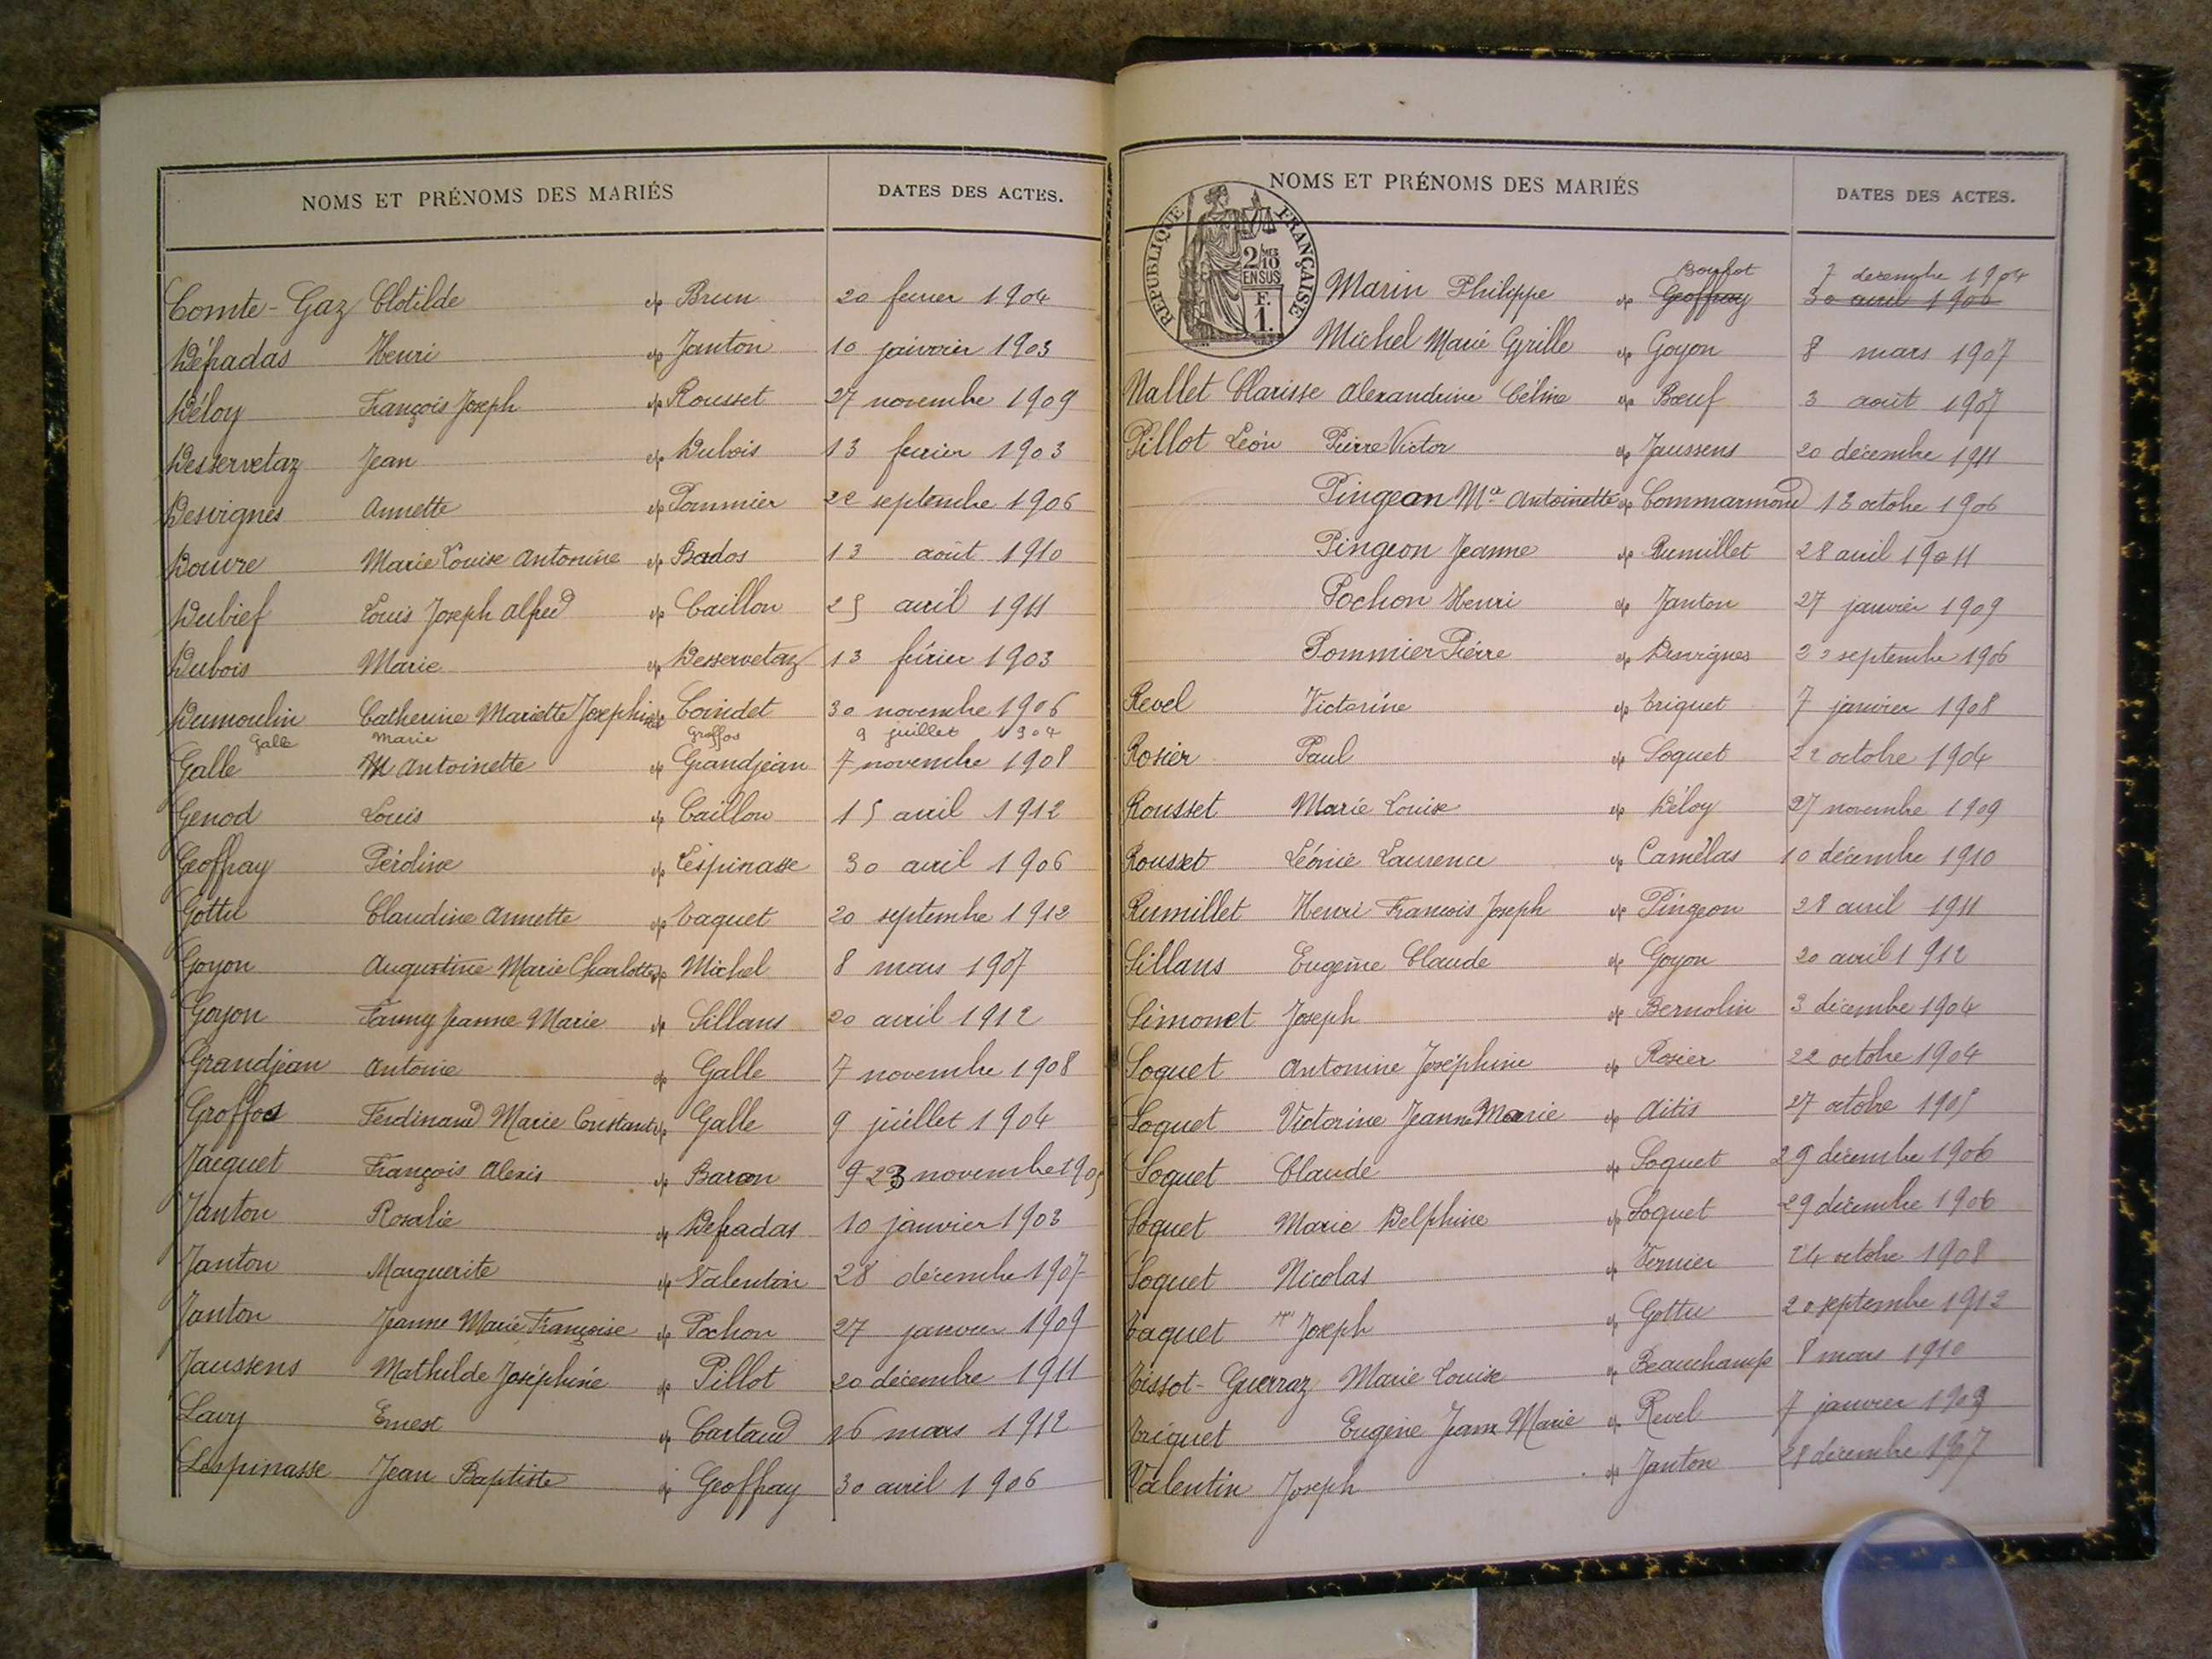 NOMS ET PRÉNOMS DES MARIÉS DATES DES ACTES.
Comte-Gaz Clotilde ép Brun 20 fevrier 1904
Défradas Henri ép Janton 10 janvier 1903
Déloy François Joseph ép Rousset 27 novembre 1909
Desservetaz Jean ép Dubois 13 fevrier 1903
Desvignes Annette ép Pommier 22 septembre 1906
Douvre Marie Louise Antonine ép Bados 13 août 1910
Dubief Louis Joseph Alfred ép Caillon 25 avril 1911
Dubois Marie ép Desservetaz 13 février 1903
Dumoulin Catherine Mariette Josephine ép Coindet 30 novembre 1906
Galle Marie Groffos 9 juillet 1904
Galle M Antoinette ép Grandjean 7 novembre 1908
Genod Louis ép Caillon 15 avril 1912
Geoffray Péroline ép Lespinasse 30 avril 1906
Gottu Claudine Annette ép Taquet 20 septembre 1912
Goyon Augustine Marie Charlotte ép Michel 8 mars 1907
Goyon Fanny Jeanne Marie ép Sillans 20 avril 1912
Grandjean Antoine ép Galle 7 novembre 1908
Groffos Ferdinand Marie Constant ép Galle 9 juillet 1904
Jacquet François Alexis ép Baron 23 novembre 1905
Janton Rosalie ép Defradas 10 janvier 1903
Janton Marguerite ép Valentin 28 décembre 1907
Janton Jeanne Marie Françoise ép Pochon 27 janvier 1909
Jaussens Mathilde Joséphine ép Pillot 20 décembre 1911
Lavy Ernest ép Cartaud 16 mars 1912
Lespinasse Jean Baptiste ép Geoffray 30 avril 1906
NOMS ET PRÉNOMS DES MARIÉS DATES DES ACTES.
RÉPUBLIQUE FRANÇAISE
2/10 MES
EN SUS
F.
1.
Bouhot 7 decembre 1904
Marin Philippe ép Geoffray 30 avril 1906
Michel Marie Cyrille ép Goyon 8 mars 1907
Nallet Clarisse Alexandrine Céline ép Bœuf 3 août 1907
Pillot Léon Pierre Victor ép Jaussens 20 décembre 1911
Pingeon Mie Antoinette ép Commarmond 13 octobre 1906
Pingeon Jeanne ép Rumillet 28 avril 1911
Pochon Henri ép Janton 27 janvier 1909
Pommier Pierre ép Desvignes 22 septembre 1906
Revel Victorine ép Triquet 7 janvier 1908
Rosier Paul ép Soquet 22 octobre 1904
Rousset Marie Louise ép Déloy 27 novembre 1909
Rousset Léonie Laurence ép Camélas 10 décembre 1910
Rumillet Henri François Joseph ép Pingeon 28 avril 1911
Sillans Eugène Claude ép Goyon 20 avril 1912
Simonet Joseph ép Bernolin 3 décembre 1904
Soquet Antonine Joséphine ép Rosier 22 octobre 1904
Soquet Victorine Jeanne Marie ép Aitis 27 octobre 1905
Soquet Claude ép Soquet 29 décembre 1906
Soquet Marie Delphine ép Soquet 29 décembre 1906
Soquet Nicolas ép Vernier 24 octobre 1908
Taquet Joseph ép Gottu 20 septembre 1912
Tissot-Guerraz Marie Louise ép Beauchamp 8 mars 1910
Triquet Eugène Jean Marie ép Revel 7 janvier
Valentin Joseph ép Janton 28 décembre 1907